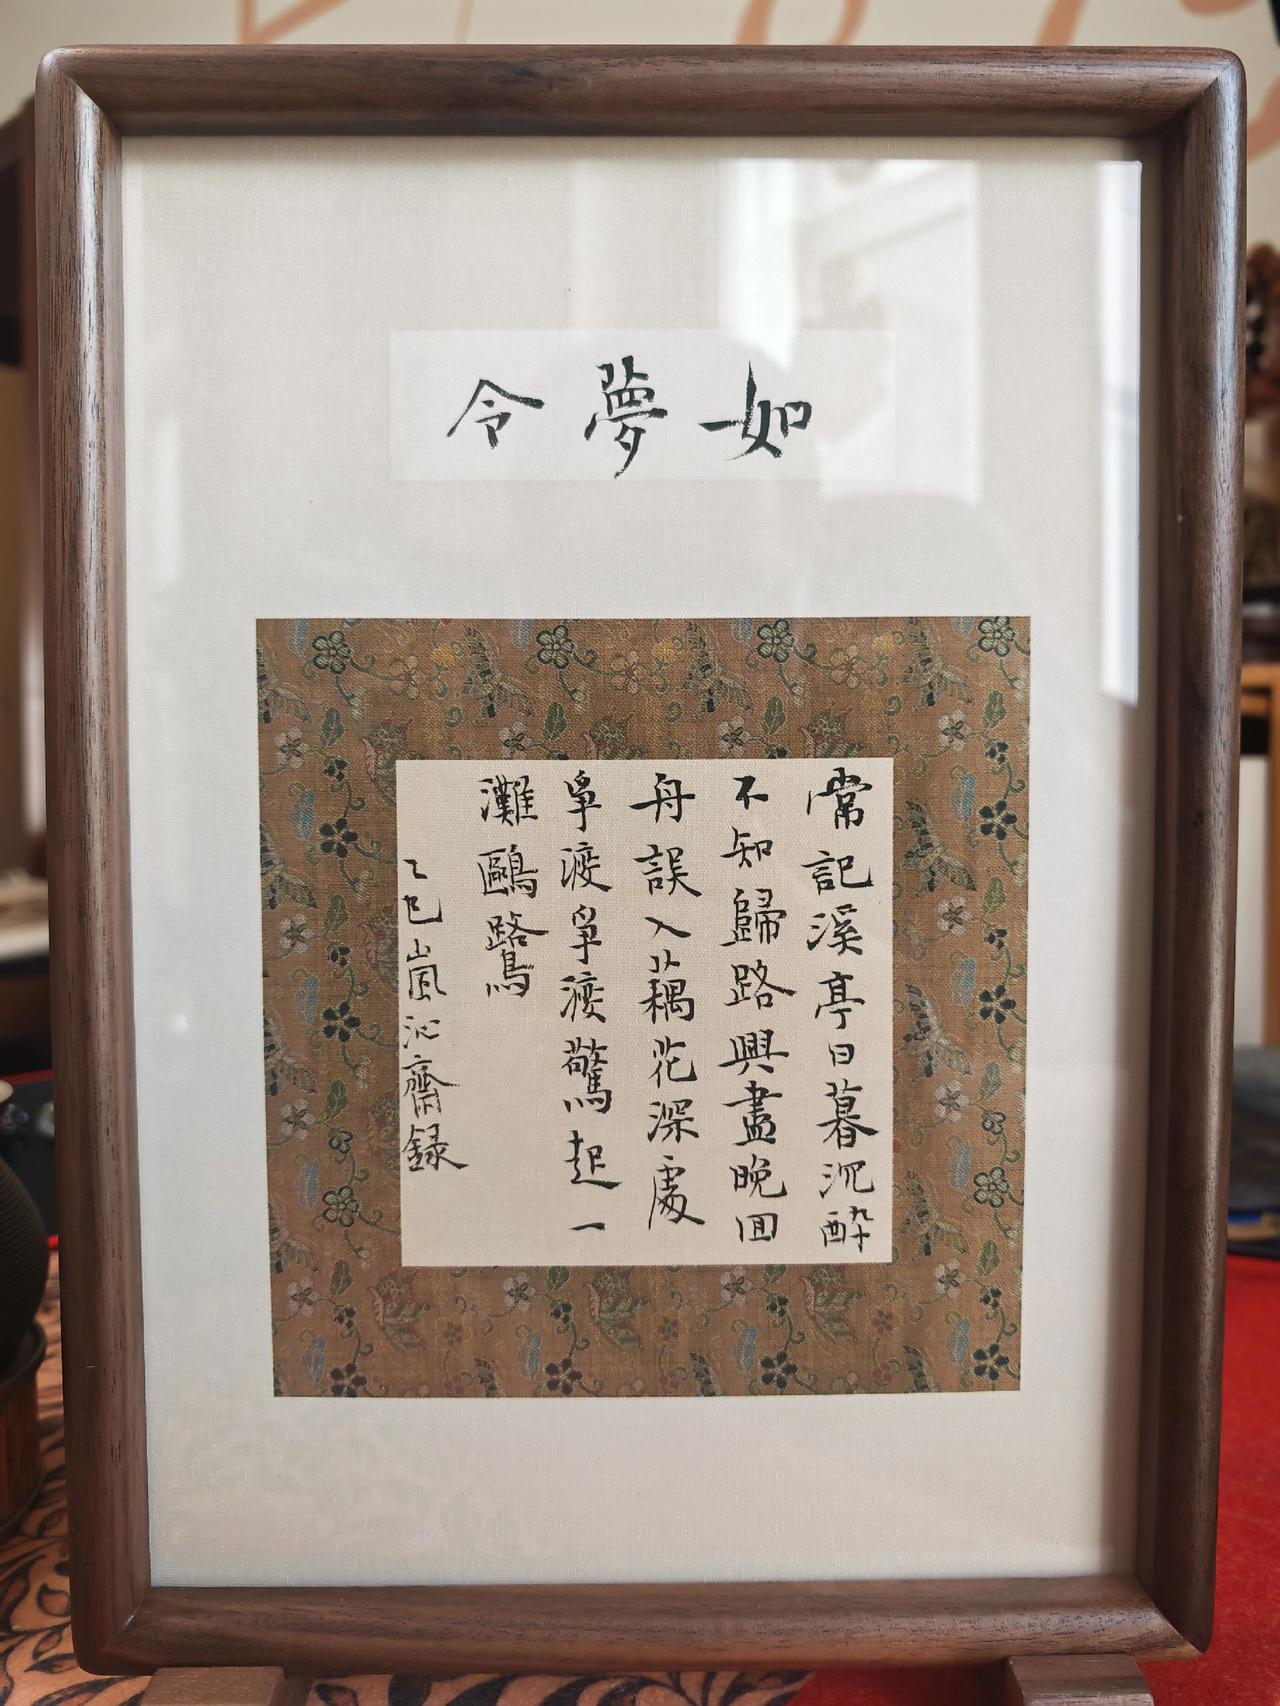 如夢令
常記溪亭日暮沉酔
不知歸路興盡晚回
舟誤入藕花深處
爭渡爭渡驚起一
灘鷗鷺
乙巳嵐沁齋録